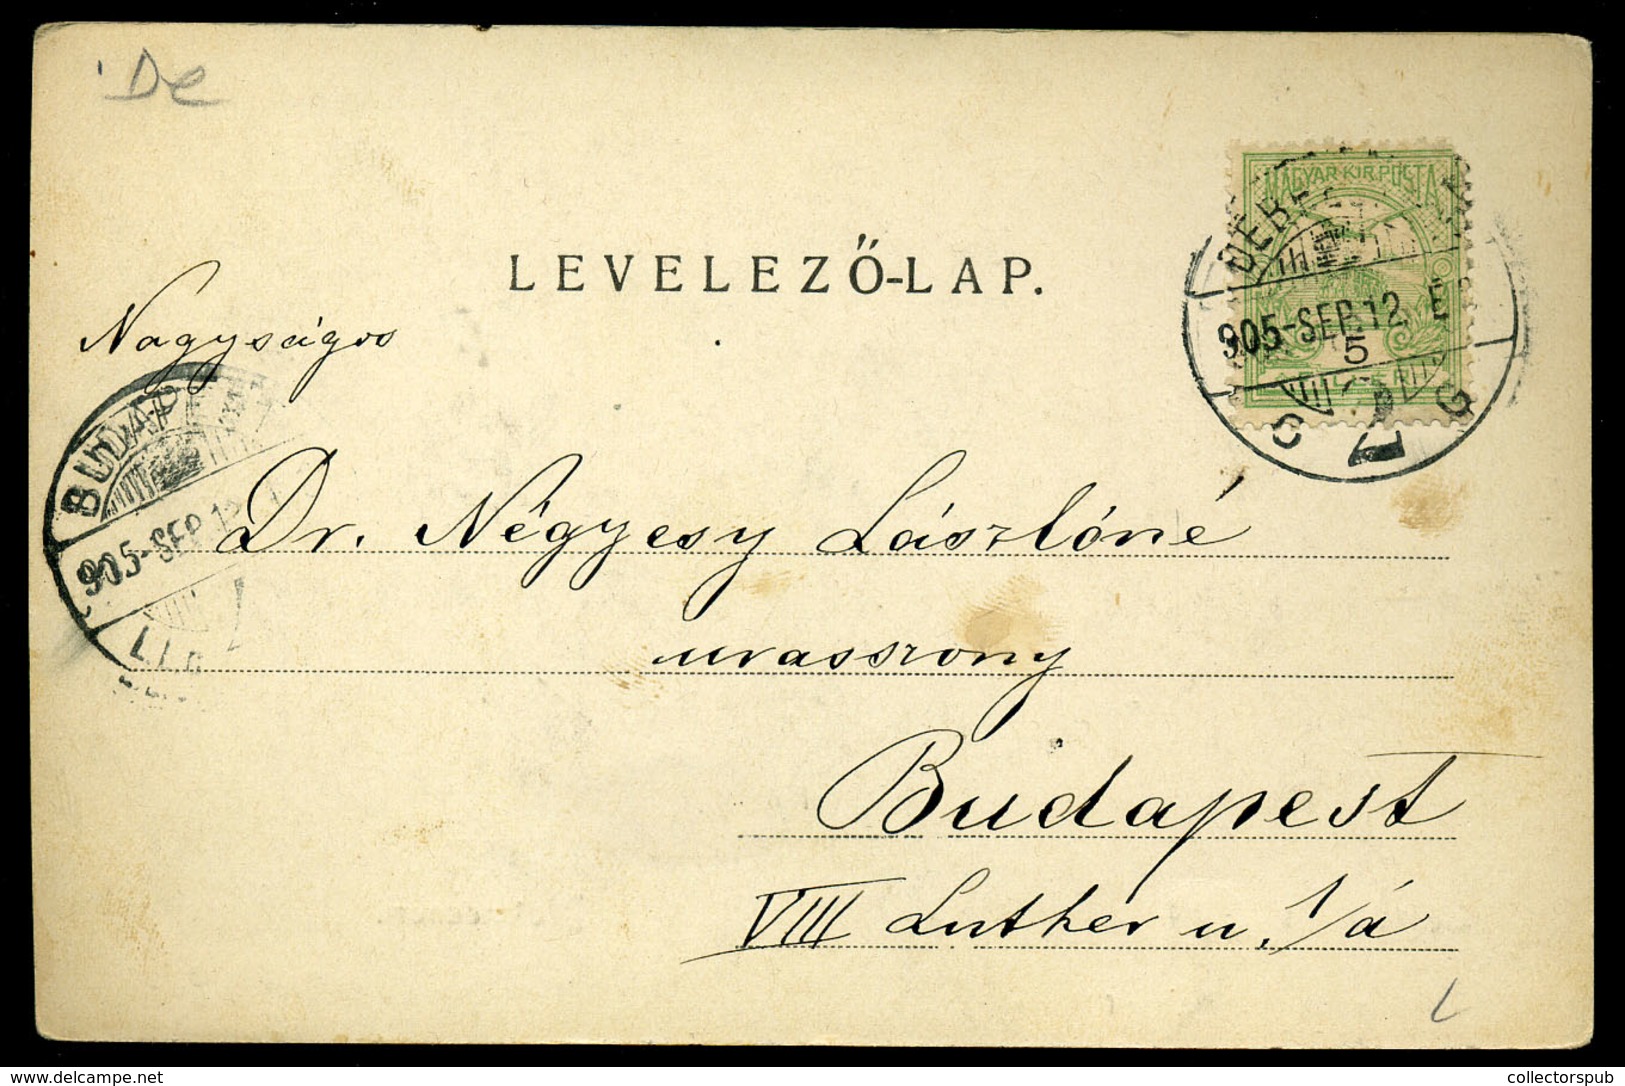 De
LEVELEZŐ-LAP.
MAGYAR KIR. POSTA
905-SEP.12. E
5
Nagyságos
BUDAP
905-SEP.12
Dr. Négyesy Lászlóné
urasszony
Budapest
VIII Luther u. 1/á
collectorspub